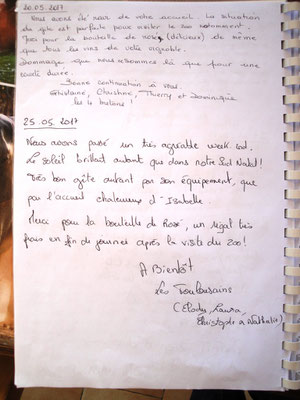 20.05.2017
Nous avons été ravis de votre accueil. La situation
du gîte est parfaite pour visiter le zoo notamment.
pour la bouteille de rosé (délicieux) de même
que tous les vins de votre vignoble.
Dommage que nous n'étions là que pour une
courte durée.
Bonne continuation à vous.
Ghislaine, Christine, Thierry et Dominique
les 4
25.05.2017
Nous avons passé un très agréable week end.
Le soleil brillait autant que dans notre Sud Natal!
Très bon gîte autant par son équipement, que
par l'accueil chaleureux d'Isabelle.
Merci pour la bouteille de Rosé, un régal très
frais en fin de journée après la visite du zoo!
A Bientôt
Les Toulousains
(Elody, Laura,
Christophe & Nathalie)